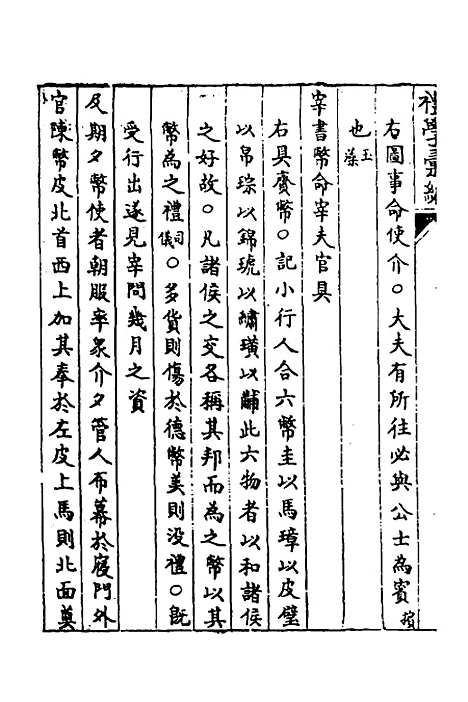 禮學彙編
右圖事命使介○大夫有所往必與公士為賓擯
也玉藻
宰書幣命宰夫官具
右具賫幣○記小行人合六幣圭以馬璋以皮璧
以帛琮以錦琥以繡璜以黼此六物者以和諸侯
之好故○凡諸侯之交各稱其邦而為之幣以其
幣為之禮司儀○多貨則傷於德幣美則没禮○既
受行出遂見宰問幾月之資
及期夕幣使者朝服率衆介夕管人布幕於寢門外
官陳幣皮北首西上加其奉於左皮上馬則北面奠